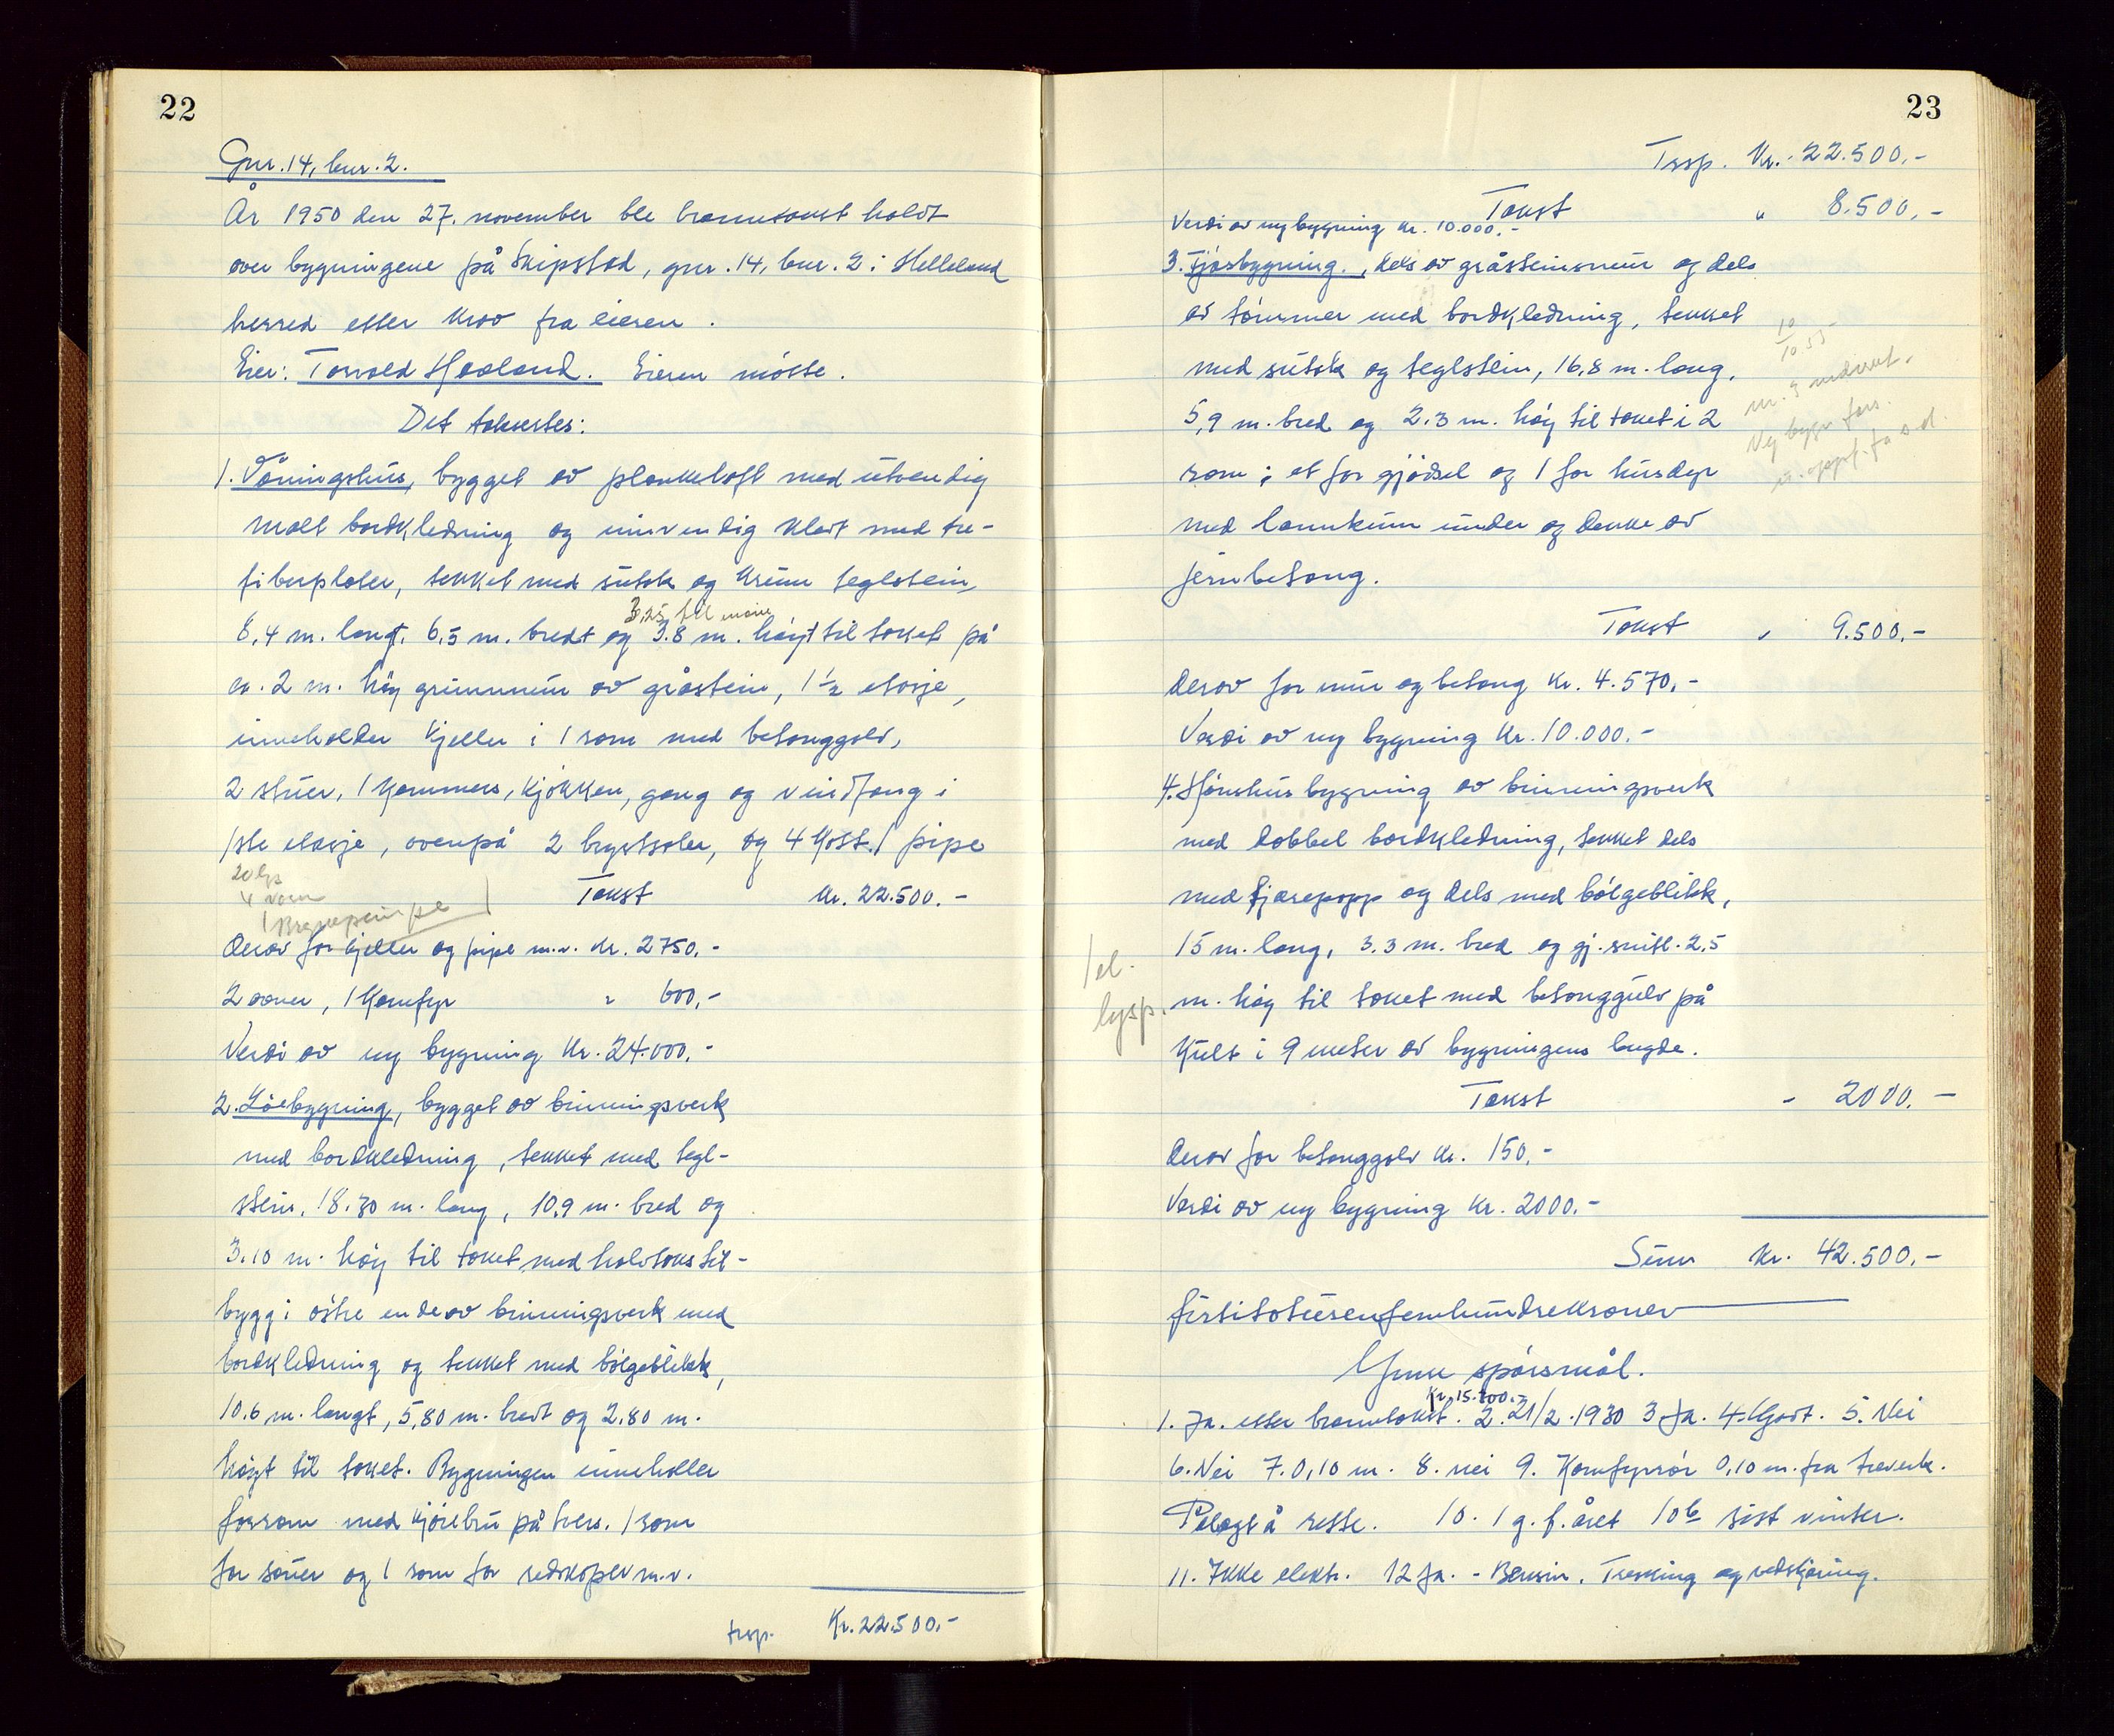 22
Gnr. 14, bnr. 2.
År 1950 den 27. november ble branntakst holdt
over bygningene på Skipstad, gnr. 14, bnr. 2 i Helleland
herred etter krav fra eieren.
Eier: Torvald Haaland. Eieren møtte.
Det takstes:
1. Våningshus, bygget av plankeloft med utvendig
malt bordkledning og innvendig kledt med tre-
fiberplater, tekket med sutak og krum teglstein,
3,25 til møne
8,4 m. langt, 6,5 m. bredt og 3.8 m. høyt til taket på
ca. 2 m. høy grunnmur av gråstein, 1 1/2 etasje,
inneholder kjeller i 1 rom med betonggolv,
2 stuer, 1 kammers, kjøkken, gang og vindfang i
1ste etasje, ovenpå 2 brystsaler, og 4 kott. 1 pipe
20 lys
4 varm
1
Takst Kr. 22.500.-
Derav for kjeller og pipe m.v. Kr. 2750,-
2 ovner, 1 komfyr " 600,-
Verdi av ny bygning Kr. 24.000,-
2. Løebygning, bygget av binningsverk
med bordkledning, tekket med tegl-
stein, 18.30 m. lang, 10,9 m. bred og
3.10 m. høy til taket med halvtaks til-
bygg i østre ende av binningsverk med
bordkledning og tekket med bølgeblikk,
10,6 m. langt, 5,80 m. bredt og 2.80 m.
høyt til taket. Bygningen inneholder
forrom med kjørebru på tvers. 1 rom
for sauer og 1 rom for redskaper m.v.
trsp. Kr. 22.500.-
23
Trsp. Kr. 22.500,-
Takst " 8.500,-
Verdi av ny bygning Kr. 10.000.-
3. Fjøsbygning, dels av gråsteinsmur og dels
av tømmer med bordkledning, tekket
med sutak og teglstein, 16,8 m. lang,
5,9 m. bred og 2.3 m. høy til taket i 2
rom; et for gjødsel og 1 for husdyr
med lannkum under og dekke av
jernbetong.
10
10.55
nr. 3 nedrevet.
Ny bygn. fors.
Takst " 9.500.-
Derav for mur og betong Kr. 4.570,-
Verdi av ny bygning Kr. 10.000.-
4. Hønshusbygning av binningsverk
med dobbel bordkledning, tekket dels
med tjærepapp og dels med bølgeblikk,
15 m. lang, 3.3 m. bred og gj.snitl. 2,5
m. høy til taket med betonggulv på
kult i 9 meter av bygningens lengde.
1 el.
lysp.
Takst - 2000.-
Derav for betonggolv Kr. 150,-
Verdi av ny bygning Kr. 2000.-
Sum Kr. 42.500,-
førtitotusenfemhundrekroner
Ymse spørsmål.
Kr. 15.800.-
1. Ja. etter branntakst. 2. 21/2. 1930 3 Ja. 4. Godt. 5. Nei
6. Nei 7. 0,10 m. 8. nei 9. Komfyrrør 0,10 m. fra treverk.
Pålagt å rette. 10. 1 g. f. året 10b sist vinter.
11. Ikke elektr. 12 Ja. - Bensin. Tresking og vedskjæring.